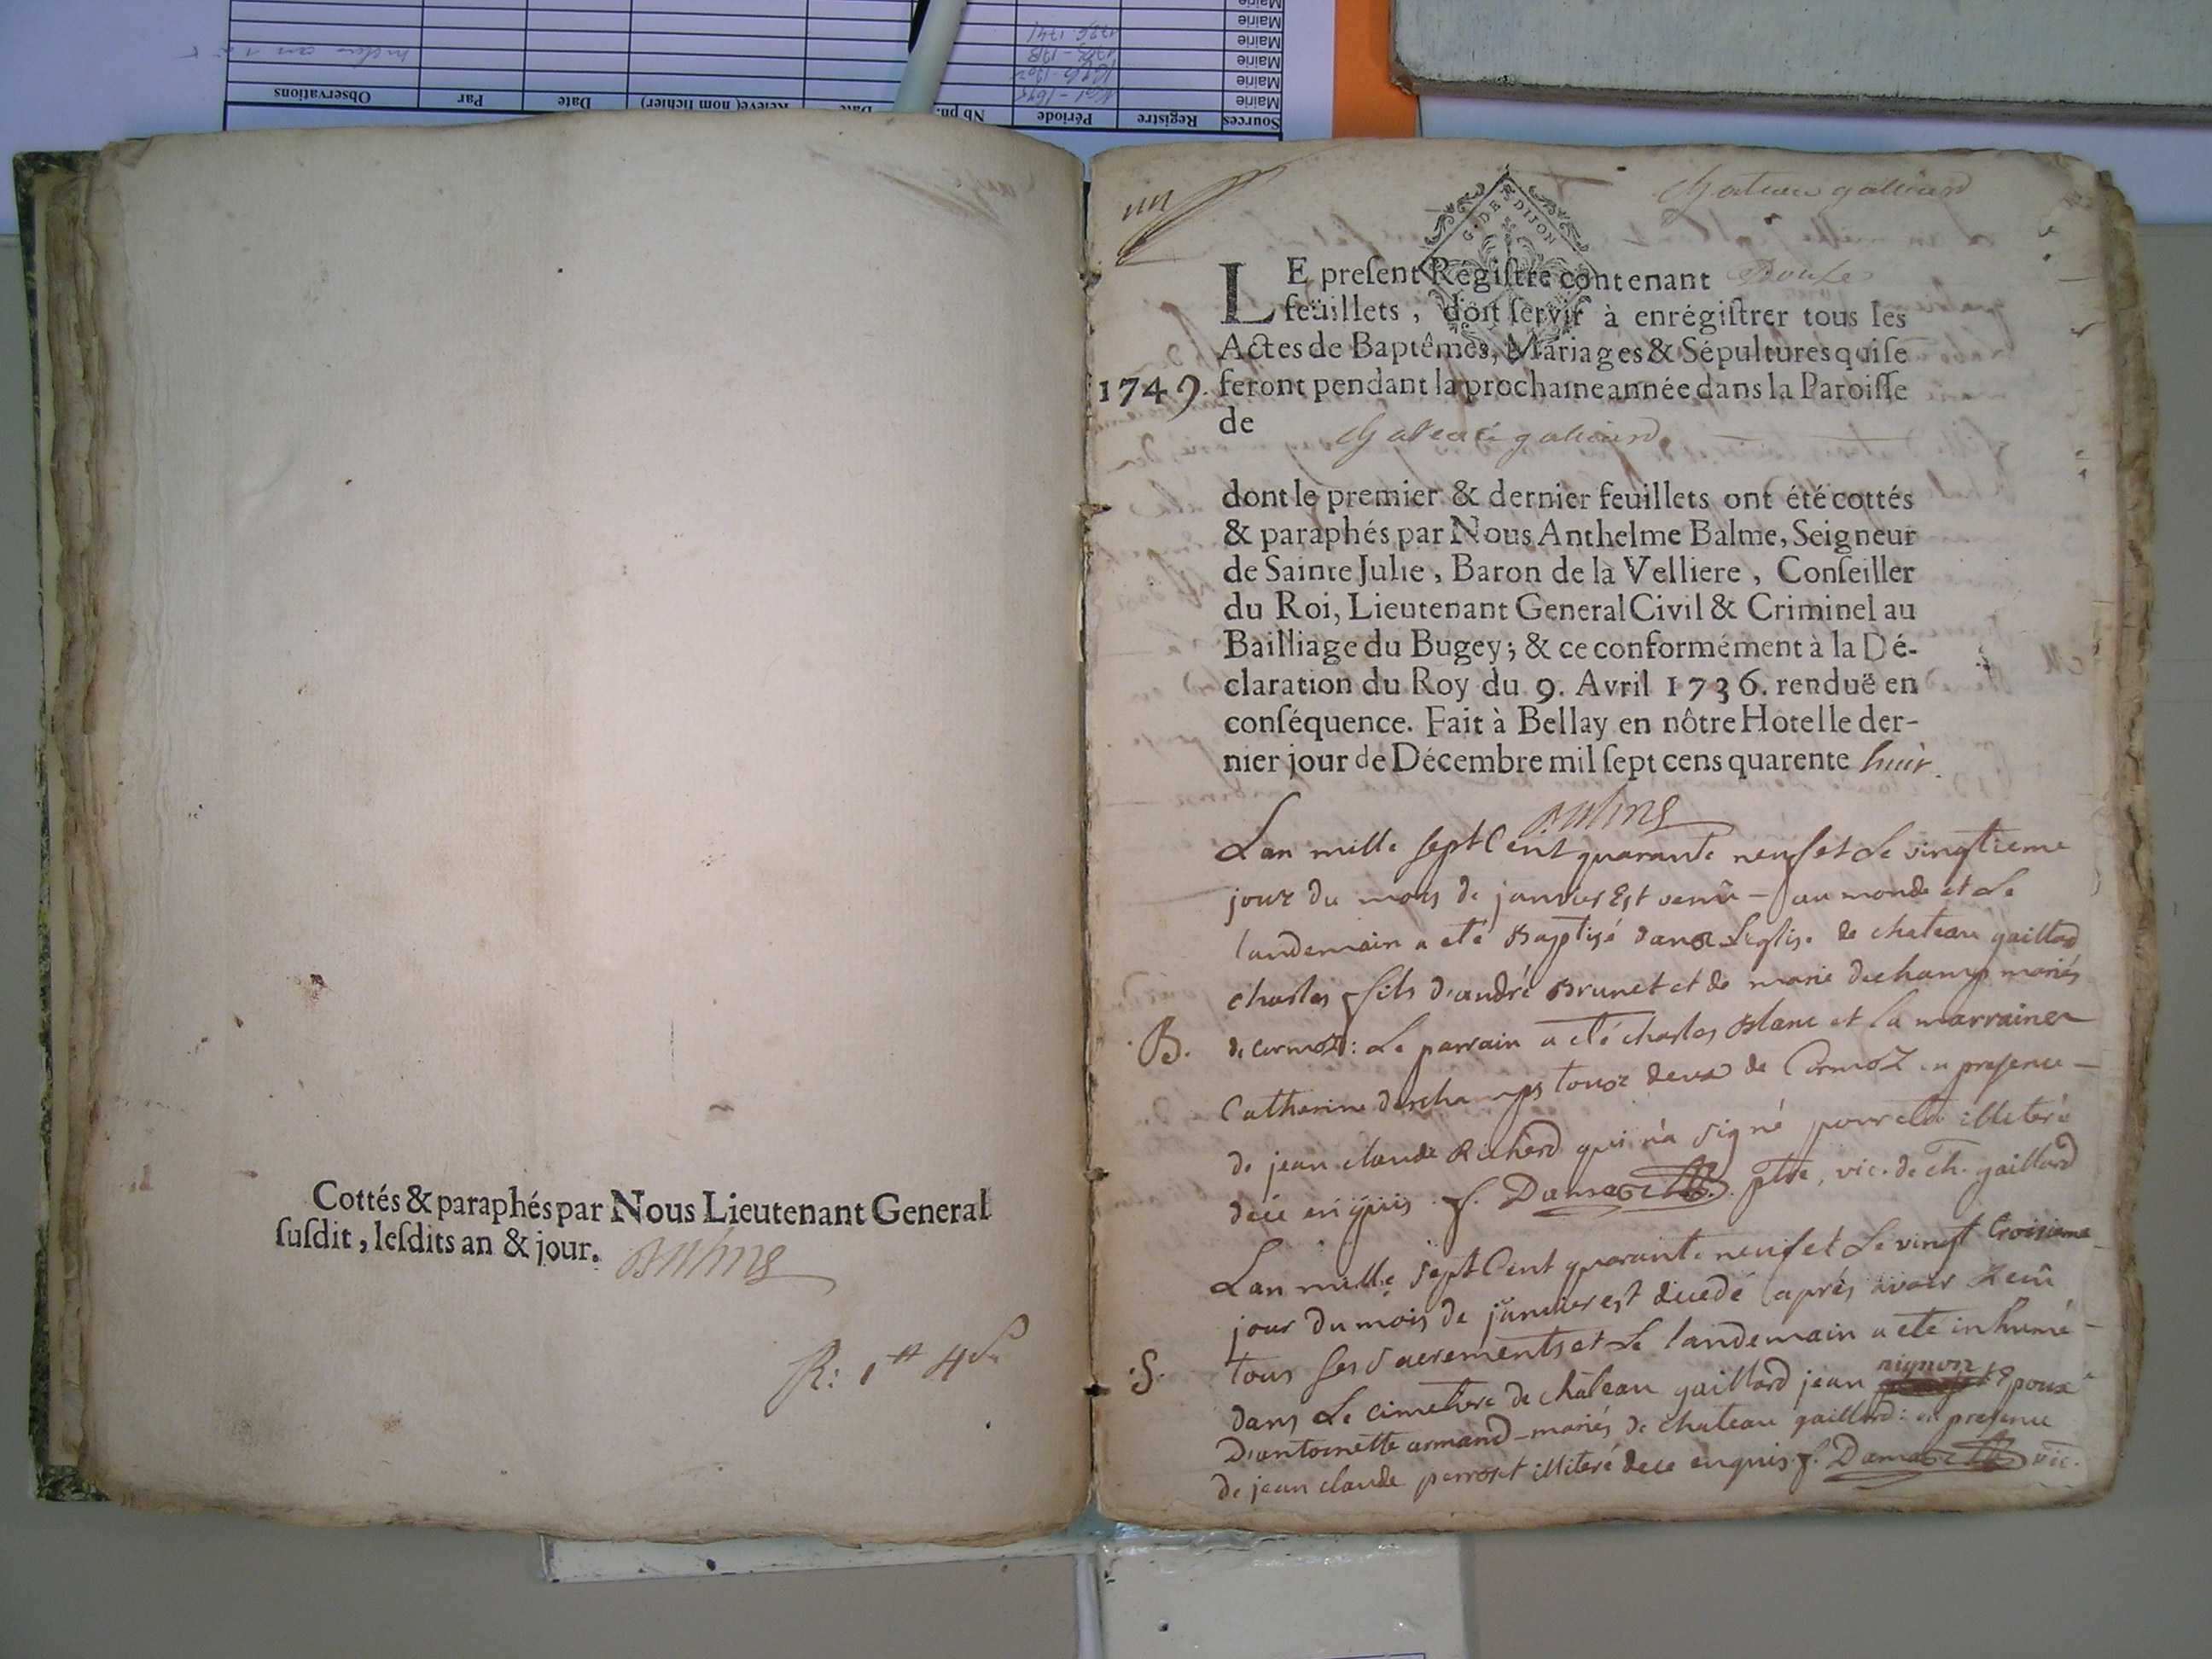 Observations
Par
Date
Relevé( nom fichier)
Date
Nb ph.
Période
Registre
Sources
Mairie
Mairie
Mairie
Mairie
Mairie
Mairie
Cottés & paraphés par Nous Lieutenant General
ſuſdit, leſdits an & jour. Balme
R: 1tt 4s
chateau galliard
G. DE DIJON
LE preſent Régiſtre contenant Douze
feüillets, doit ſervir à enrégiſtrer tous les
Actes de Baptêmes, Mariages & Sépultures qui ſe
1749. feront pendant la prochaine année dans la Paroiſſe
de chateau galliard
dont le premier & dernier feuillets ont été cottés
& paraphés par Nous Anthelme Balme, Seigneur
de Sainte Julie, Baron de la Velliere, Conſeiller
du Roi, Lieutenant General Civil & Criminel au
Bailliage du Bugey; & ce conformément à la Dé-
claration du Roy du 9. Avril 1736. renduë en
conſéquence. Fait à Bellay en nôtre Hotel le der-
nier jour de Décembre mil ſept cens quarente huit.
Balme
Lan mille sept Cent quarante neuf et Le vingtieme
jour du mois de janvier Est venû – au monde et Le
landemain a eté Baptisé dans L'eglise de chateau gaillard
charles fils d'andré Brunet et de marie dechamp mariés
B. de cormoz: Le parrain a eté charles Blanc et la marraine
Catherine deschamps tous deux de Cormoz en presence –
de jean claude Richerd qui n'a signé pour etre illiteré
dece enquis. f. ptre, vic. de ch. gaillard
Lan mille sept Cent quarante neuf et Le vingt troisieme
jour du mois de janvier est decedé après avoir Reçû
tous ses sacrements et Le landemain a eté inhumé –
S. dans Le cimetiere de château gaillard jean nignon Epoux
D'antoinette armand – mariés de chateau gaillard: en presence
de jean claude perroset illiteré dece enquis. f. vic.